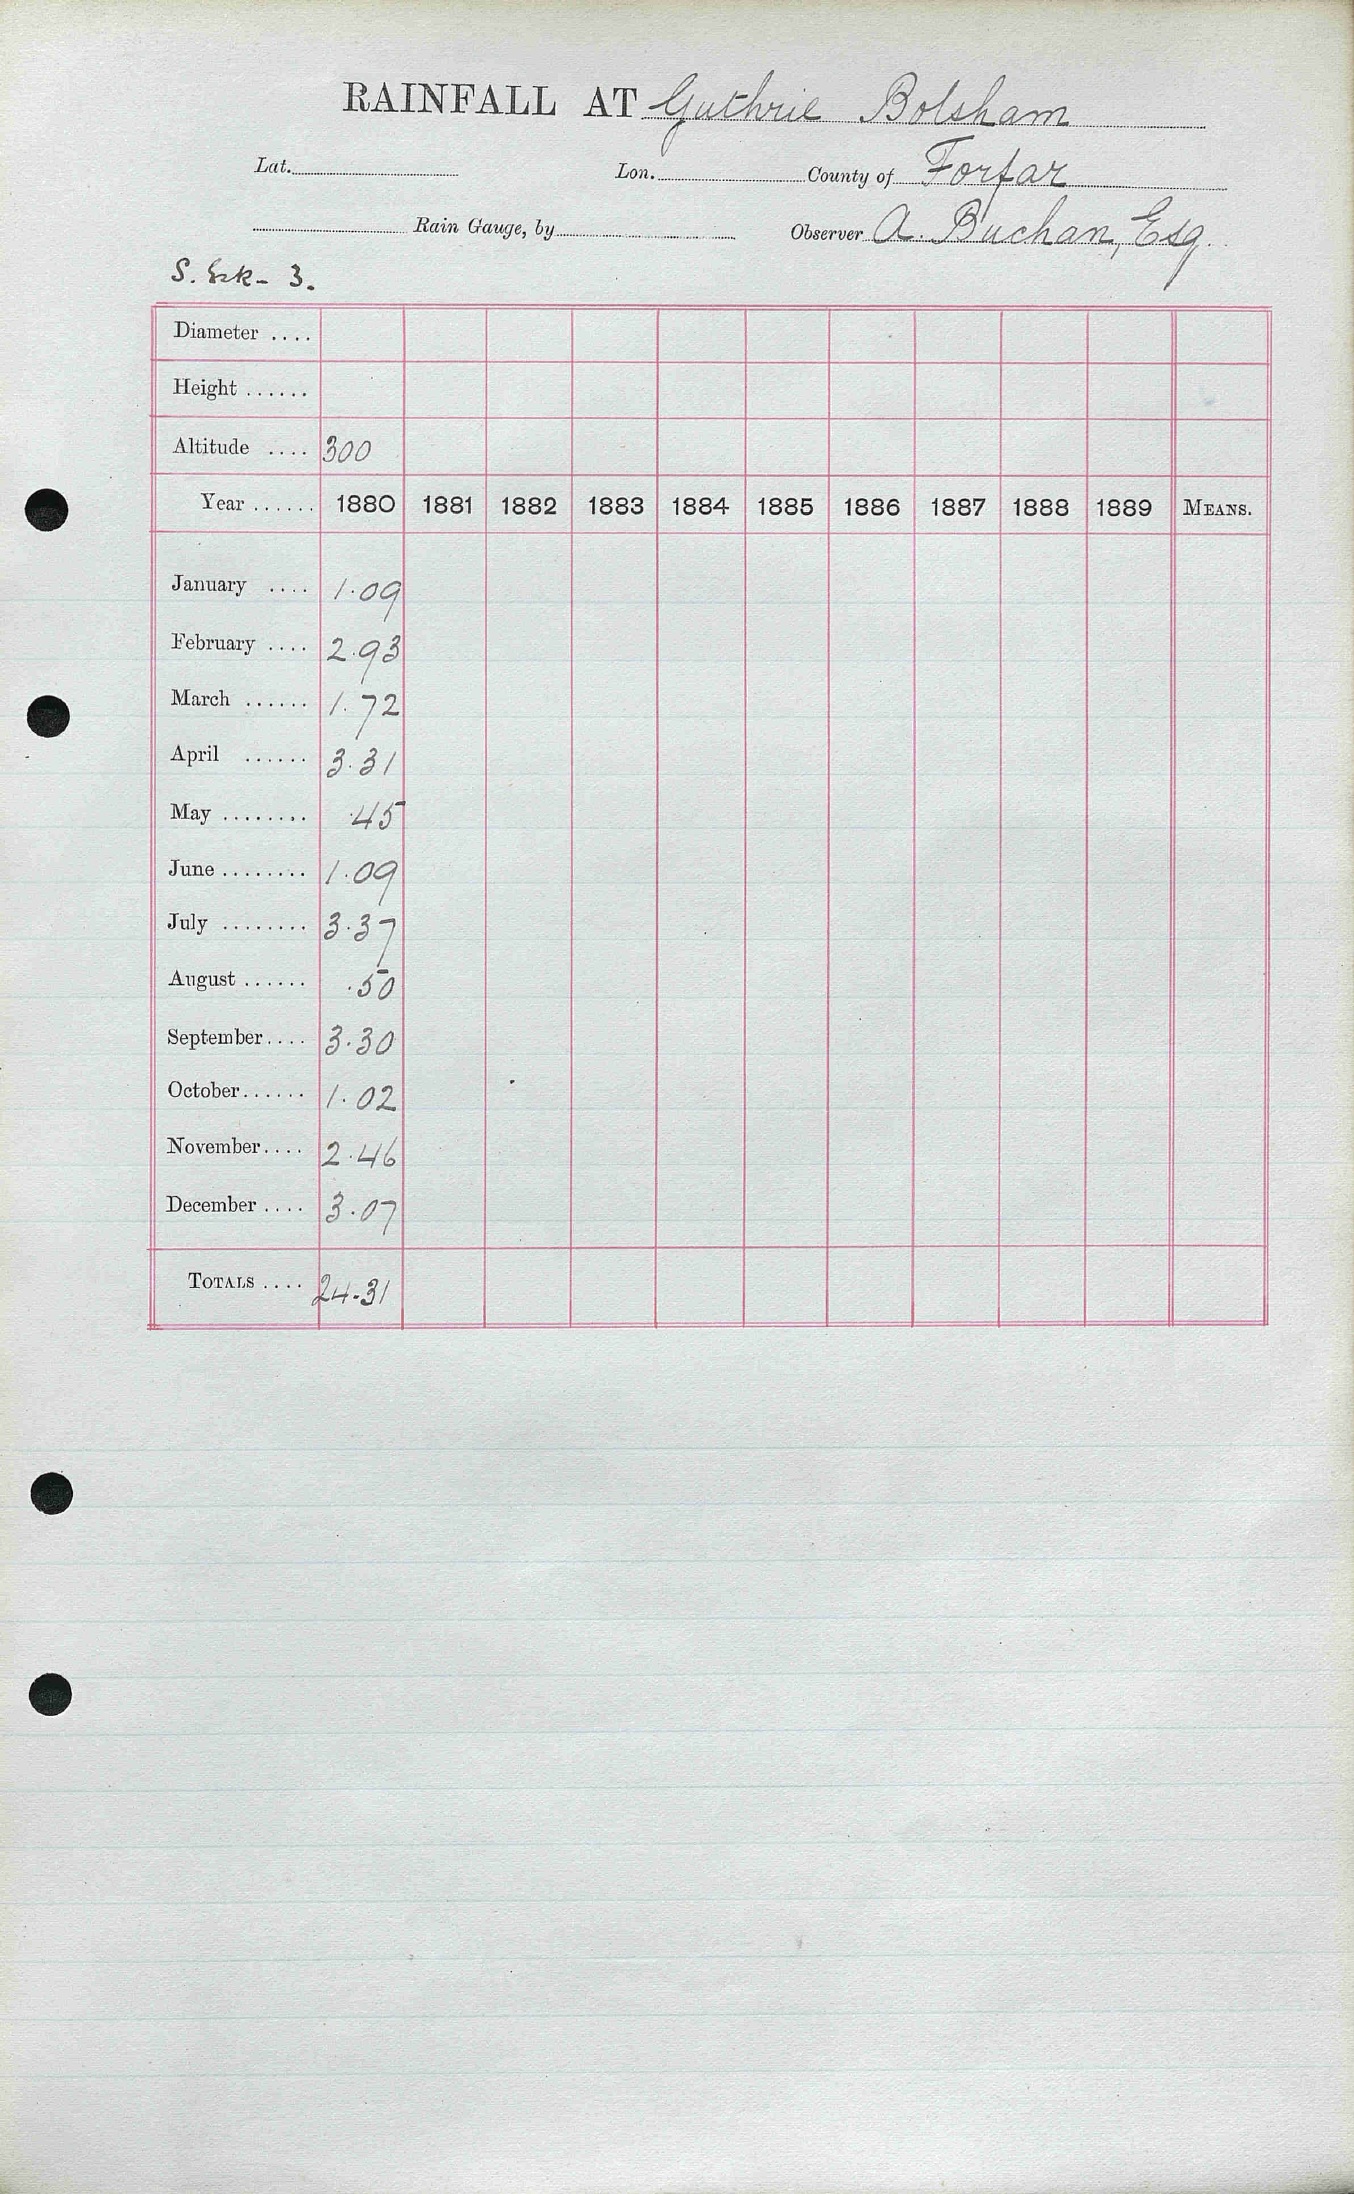 RAINFALL AT Guthrie Bolsham
Lat. Lon. County of Forfar
Rain Gauge, by Observer A. Buchan, Esq.
S. Esk - 3.
Diameter ....
Height ......
Altitude .... 300
Year ...... 1880 1881 1882 1883 1884 1885 1886 1887 1888 1889 MEANS.
January .... 1.09
February .... 2.93
March ...... 1.72
April ...... 3.31
May ........ .45
June ........ 1.09
July ........ 3.37
August ...... .50
September .... 3.30
October ...... 1.02
November .... 2.46
December .... 3.07
TOTALS .... 24.31